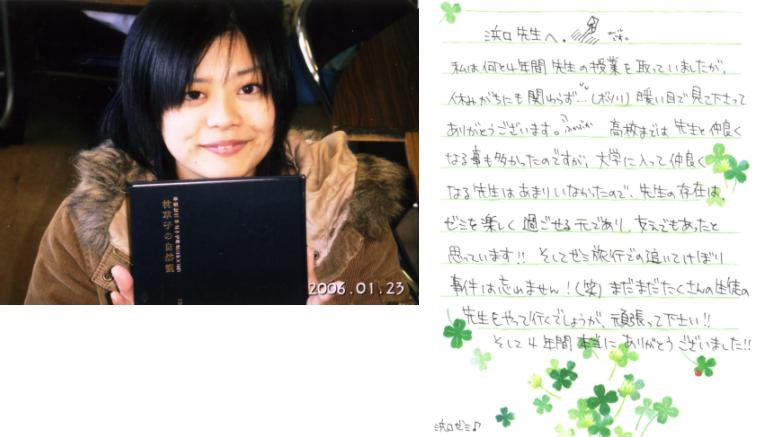 2006.01.23
浜口先生へ。
私は何と4年間先生の授業を取っていましたが、
休みがちにも関わらず…(ボソ川) 暖い目で見て下さって
ありがとうございます。 高校までは先生と仲良く
なる事も多かったのですが、大学に入って仲良く
なる先生はあまりいなかたので、先生の存在は、
ゼミを楽しく過ごせる元であり、支えでもあったと
思っています!! そしてゼミ旅行での追いてけぼり
事件は忘れません!(笑) まだまだたくさんの生徒の
先生をやって行くでしょうが、頑張って下さい!!
そして4年間本当にありがとうございました!!
浜口ゼミ♪